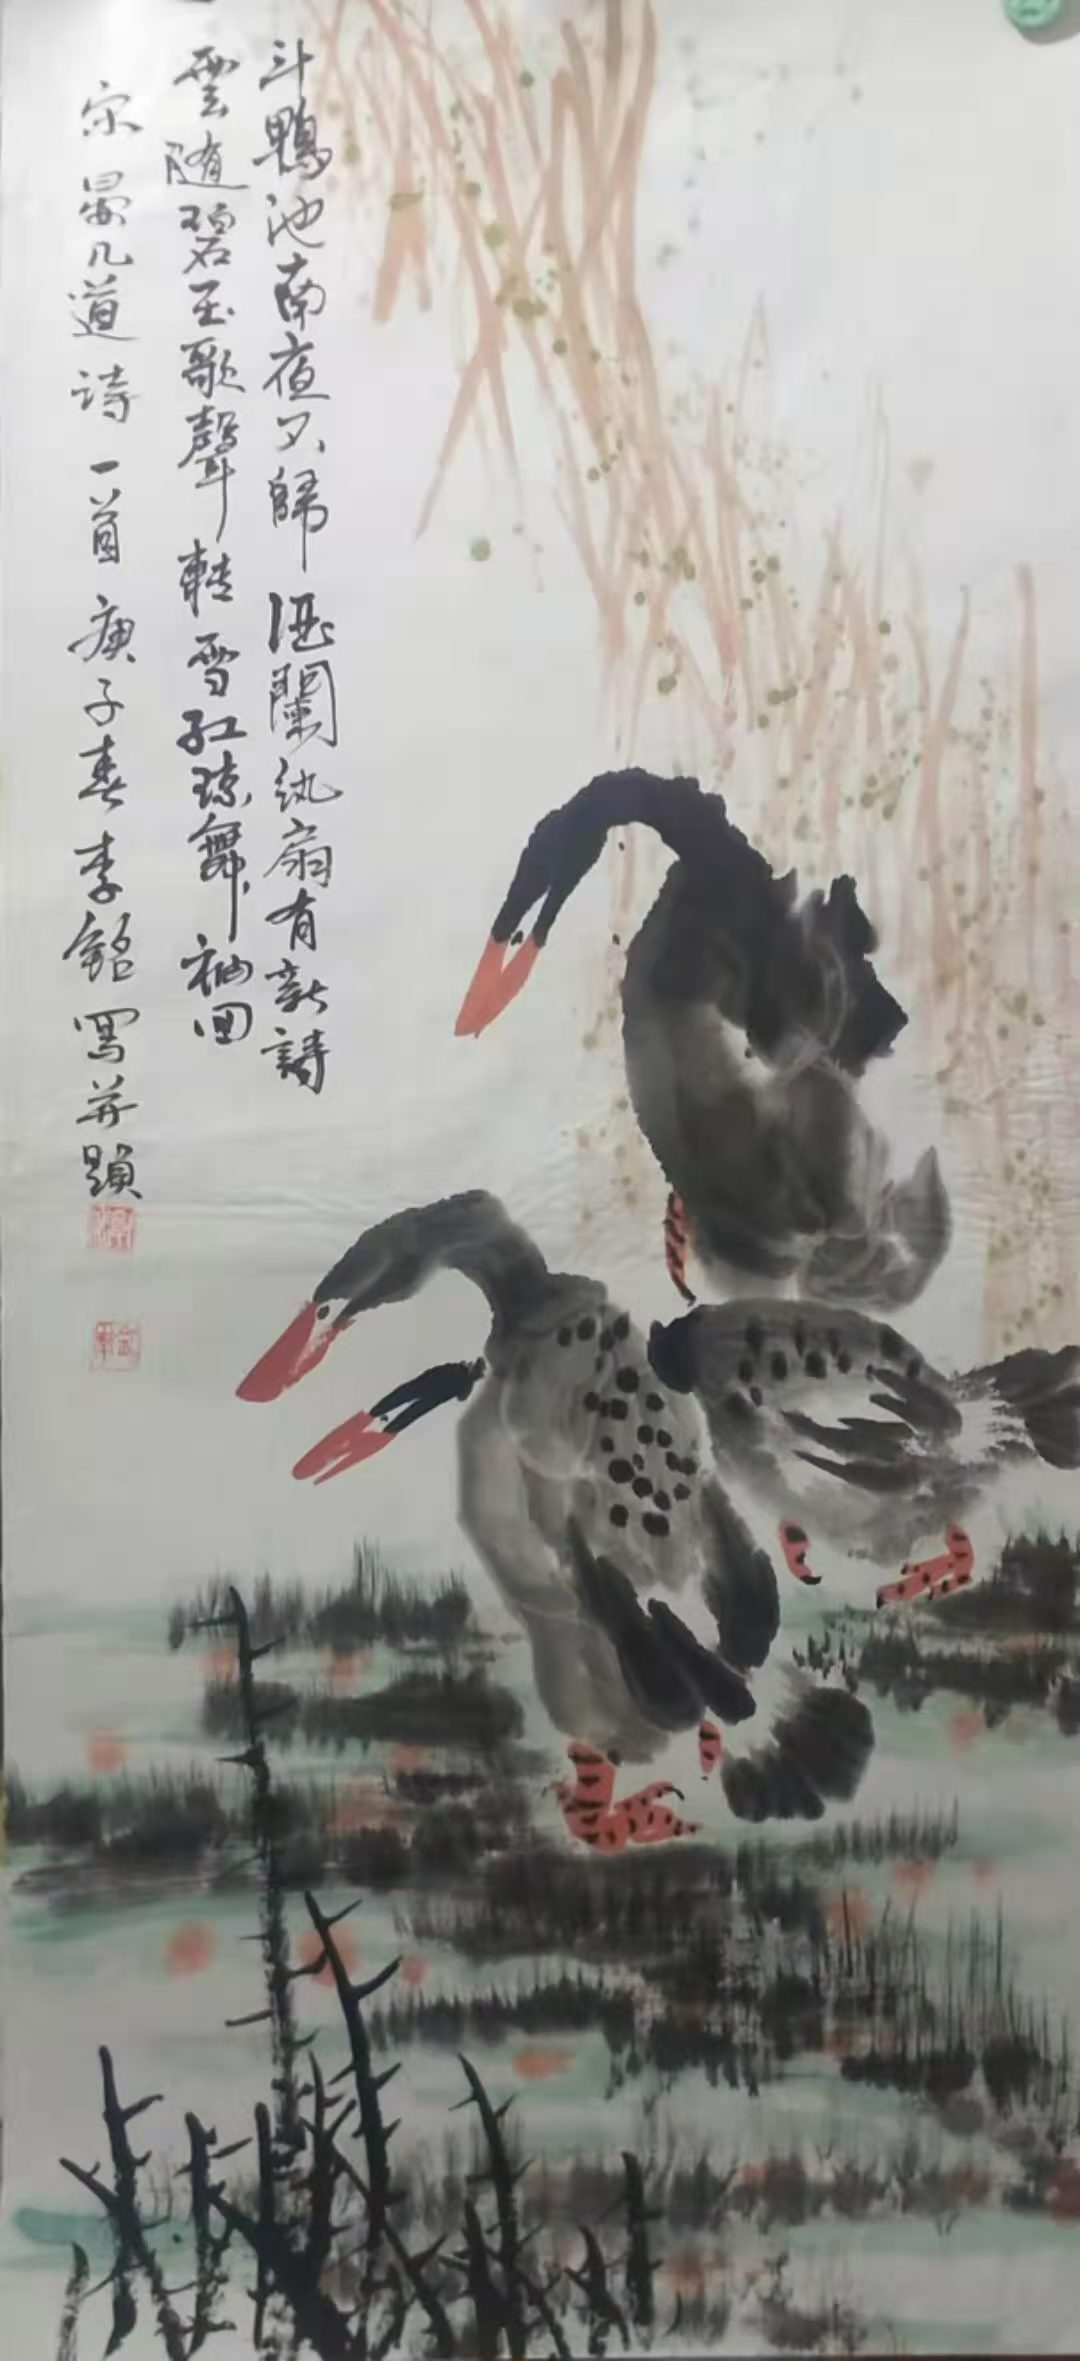 斗鴨池南夜不歸酒闌紈扇有新詩
雲随碧玉歌聲轉雪紅瓊舞袖回
宋晏几道诗一首庚子春李銘寫并題